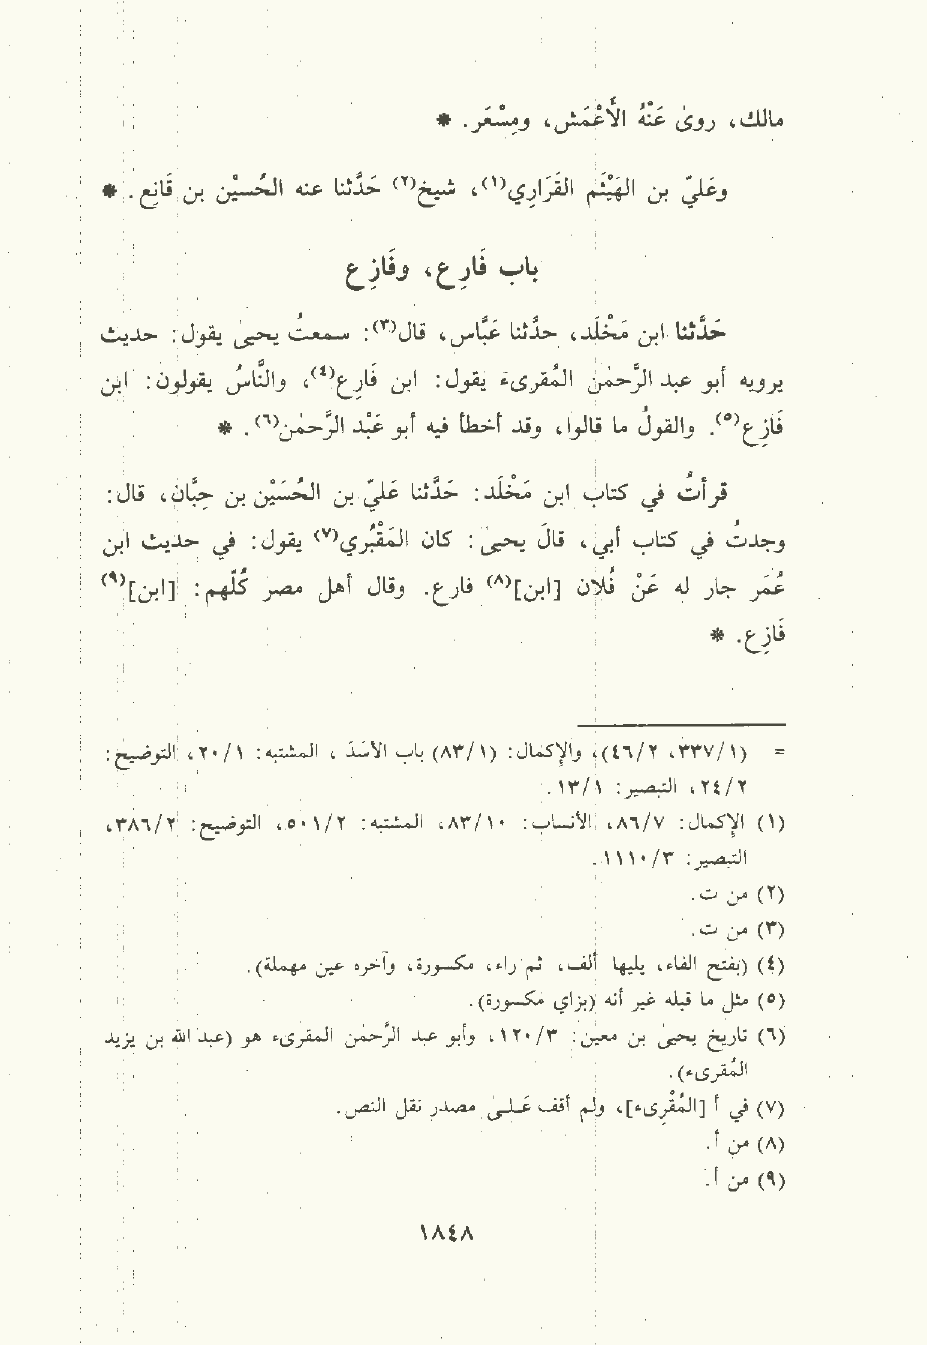 مالك، روىٰ عَنْهُ الأَعْمَش، ومِسْعَر. *
وعَليّ بن الهَيْثَم القَرَارِي(١)، شيخ(٢) حَدَّثنا عنه الحُسَيْن بن قَانِع. *
باب فَارِع، وفَازِع
حَدَّثنا ابن مَخْلَد، حدَّثنا عَبَّاس، قال(٣): سـمعتُ يحيىٰ يقول: حديث
يرويه أبو عبد الرَّحمٰن المُقرىء يقول: ابن فَارِع(٤)، والنَّاسُ يقولون: ابن
فَازِع(٥). والقولُ ما قالوا، وقد أخطأ فيه أبو عَبْد الرَّحمٰن(٦). *
قرأتُ في كتاب ابن مَخْلَد: حَدَّثنا عَليّ بن الحُسَيْن بن حِبَّان، قال:
وجدتُ في كتاب أبي، قالَ يحيىٰ: كان المَقْبُري(٧) يقول: في حديث ابن
عُمَر جار له عَنْ فُلان [ابن](٨) فارع. وقال أهل مصر كُلّهم: [ابن](٩)
فَازِع. *
= (١/٣٣٧، ٢/٤٦)، والإكمال: (١/٨٣) باب الأسَدَ، المشتبه: ١/٢٠، التوضيح:
٢/٢٤، التبصير: ١/١٣.
(١) الإكمال: ٧/٨٦، الأنساب: ١٠/٨٣، المشتبه: ٢/٥٠١، التوضيح: ٢/٣٨٦،
التبصير: ٣/١١١٠.
(٢) من ت.
(٣) من ت.
(٤) (بفتح الفاء، يليها ألف، ثم راء، مكسورة، وآخره عين مهملة).
(٥) مثل ما قبله غير أنه (بزاي مكسورة).
(٦) تاريخ يحيىٰ بن معين: ٣/١٢٠، وأبو عبد الرَّحمٰن المقرىء هو (عبد الله بن يزيد
المُقرىء).
(٧) في أ [المُقْرِىء]، ولم أقف عَلـىٰ مصدر نقل النص.
(٨) من أ.
(٩) من أ.
١٨٤٨